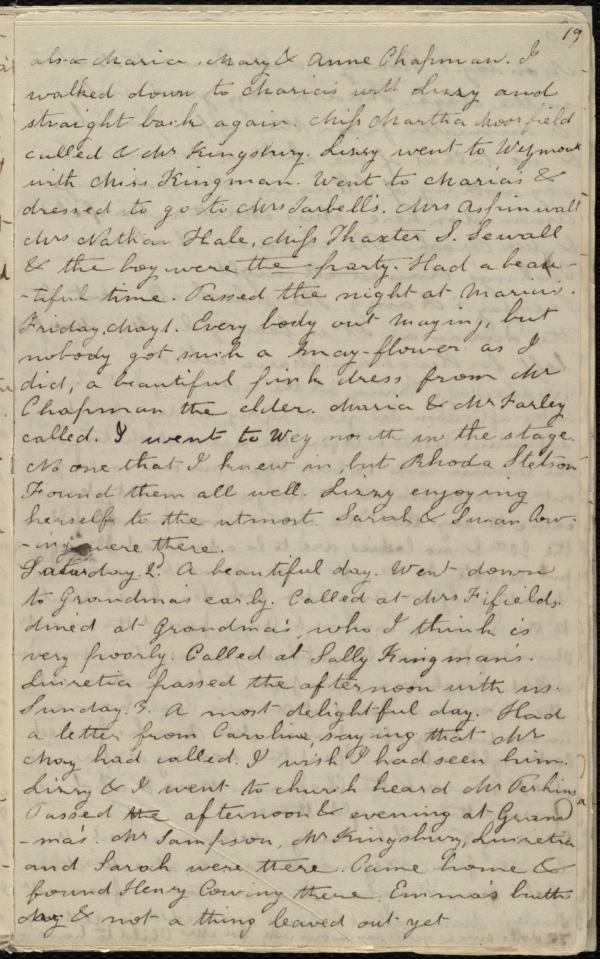 19
also Maria, Mary & Anne Chapman. I
walked down to Maria's with Lizzy and
straight back again. Miss Martha
called & Mr Kingsbury. Lizzy went to Weymouth
with Miss Kingman. Went to Maria's &
dressed to go to Mrs Tarbell's. Mrs Aspinwall
Mrs Nathan Hale, Miss Thaxter S. Sewall
& the boy were the party. Had a beau-
-tiful time. Passed the night at Maria's.
Friday, May 1. Every body out Maying, but
nobody got such a May-flower as I
did, a beautiful pink dress from Mr
Chapman the elder. Maria & Mr Farley
called. I went to Weymouth in the stage.
No one that I knew in, but Rhoda Stetson
Found them all well. Lizzy enjoying
herself to the utmost. Sarah & Susan Cow-
-ing were there.
Saturday. 2. A beautiful day. Went down
to Grandma's early. Called at Mrs Fifields.
dined at Grandma's, who I think is
very poorly. Called at Sally Kingman's.
Lucretia passed the afternoon with us.
Sunday. 3. A most delightful day. Had
a letter from Caroline, saying that Mr
May had called. I wish I had seen him.
Lizzy & I went to church heard Mr Perkins
Passed the afternoon & evening at Grand
-ma's. Mr Sampson, Mr Kingsbury, Lucretia
and Sarah were there. Came home &
found Henry Cowing there. Emma's birth
day & not a thing leaved out yet